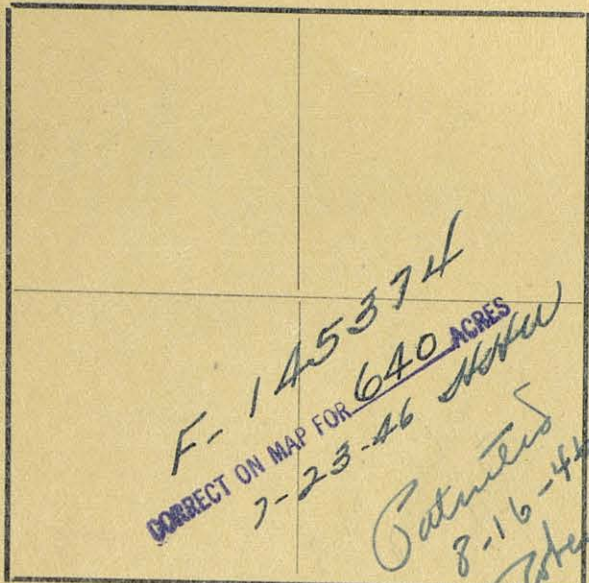 F-145374
CORRECT ON MAP FOR 640 ACRES
7-23-46
Patented
8-16-46